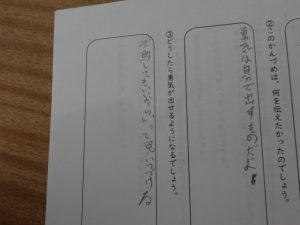 ②このかんづめは、何を伝えたかったのでしょう。
勇気は自分で出すものだよ。
③どうしたら勇気が出せるようになるでしょう。
失敗してもいいから」って思いつづける